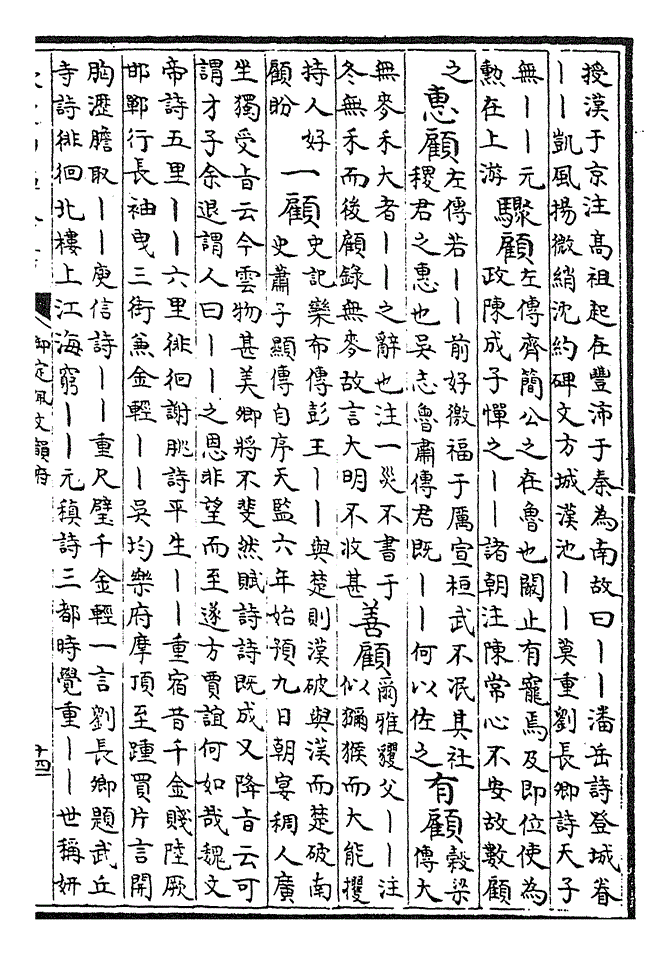 授漢于京注高祖起在豐沛于秦為南故曰丨丨潘岳詩登城眷
丨丨凱風揚微綃沈約碑文方城漢池丨丨莫重劉長卿詩天子
無丨丨元
勲在上游
驟顧
左傳齊簡公之在魯也闞止有寵焉及即位使為
政陳成子憚之丨丨諸朝注陳常心不安故數顧
之
惠顧
左傳若丨丨前好徼福于厲宣桓武不泯其社
稷君之惠也吳志魯肅傳君既丨丨何以佐之
有顧
穀梁
傳大
無麥禾大者丨丨之辭也注一災不書于
冬無禾而後顧錄無麥故言大明不收甚
善顧
爾雅玃父丨丨注
似獼猴而大能攫
持人好
顧盼
一顧
史記欒布傳彭王丨丨與楚則漢破與漢而楚破南
史蕭子顯傳自序天監六年始預九日朝宴稠人廣
坐獨受旨云今雲物甚美卿將不斐然賦詩詩既成又降旨云可
謂才子余退謂人曰丨丨之恩非望而至遂方賈誼何如哉魏文
帝詩五里丨丨六里徘徊謝朓詩平生丨丨重宿昔千金賤陸厥
邯鄲行長袖曳三街兼金輕丨丨吳均樂府摩頂至踵買片言開
胸瀝膽取丨丨庾信詩丨丨重尺璧千金輕一言劉長卿題武丘
寺詩徘徊北樓上江海窮丨丨元稹詩三都時覺重丨丨世稱妍
御定佩文韻府
十四